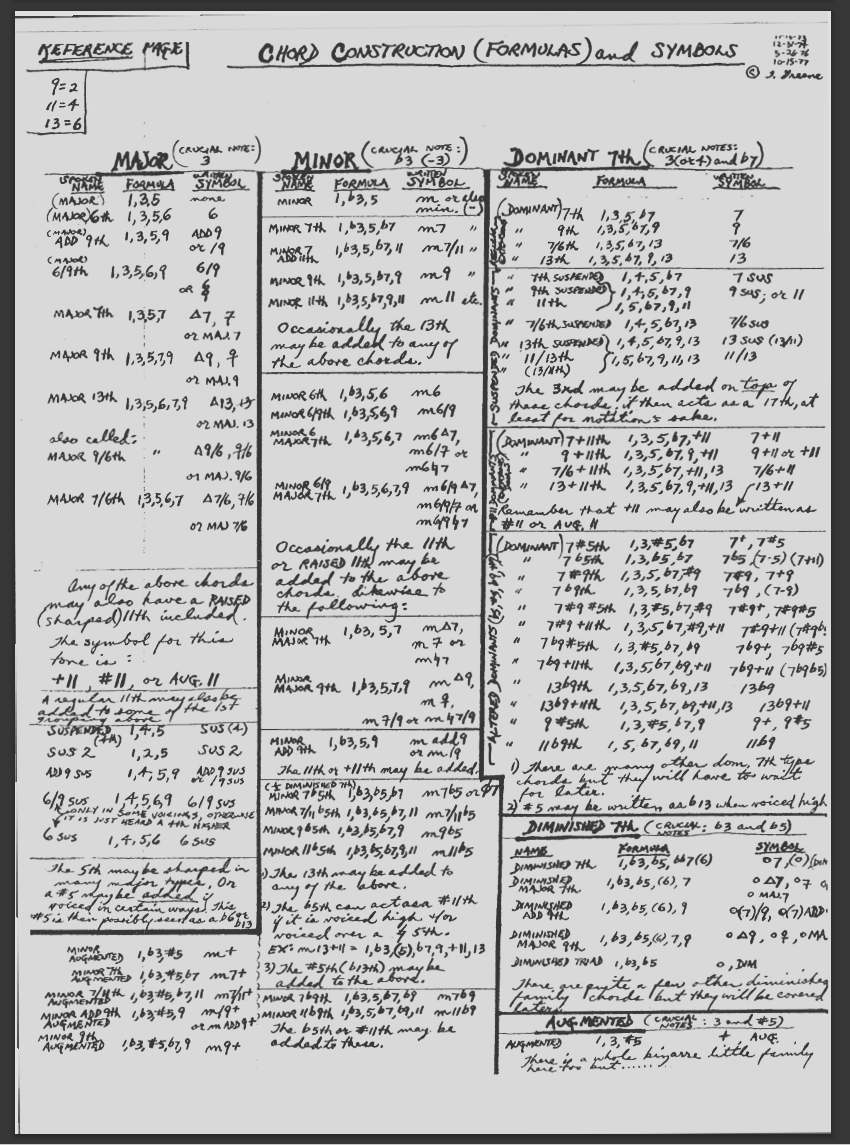 REFERENCE PAGE
CHORD CONSTRUCTION (FORMULAS) and SYMBOLS
12-31-74
5-26-76
10-15-77
© T. Greene
9=2
11=4
13=6
MAJOR (CRUCIAL NOTE: 3)
SPOKEN NAME FORMULA WRITTEN SYMBOL
(MAJOR) 1,3,5 none
(MAJOR) 6th 1,3,5,6 6
(MAJOR) ADD 9th 1,3,5,9 ADD9
or /9
(MAJOR) 6/9th 1,3,5,6,9 6/9
OR 6/9
MAJOR 7th 1,3,5,7 Δ7, 7
or MAJ.7
MAJOR 9th 1,3,5,7,9 Δ9, 9
or MAJ.9
MAJOR 13th 1,3,5,6,7,9 Δ13, 13
or MAJ. 13
also called:
MAJOR 9/6th " Δ9/6, 9/6
or MAJ. 9/6
MAJOR 7/6th 1,3,5,6,7 Δ7/6, 7/6
or MAJ 7/6
Any of the above chords
may also have a RAISED
(sharped) 11th included.
The symbol for this
tone is:
+11, #11, or AUG. 11
A regular 11th may also be
added to some of the 1st
grouping above
SUSPENDED (4th) 1,4,5 SUS (4)
SUS 2 1,2,5 SUS 2
ADD 9 SUS 1,4,5,9 ADD 9 SUS
or /9 SUS
6/9 SUS 1,4,5,6,9 6/9 SUS
ONLY IN SOME VOICINGS, OTHERWISE
IT IS JUST HEARD A 4th HIGHER
6 SUS 1,4,5,6 6 SUS
The 5th may be sharped in
many major types, Or
a #5 may be added if
voiced in certain ways. This
#5 is then possibly seen as a b6 or b13
MINOR AUGMENTED 1,b3,#5 m+
MINOR 7th AUGMENTED 1,b3,#5,b7 m7+
MINOR 7/11th AUGMENTED 1,b3,#5,b7,11 m7/11+
MINOR ADD 9th AUGMENTED 1,b3,#5,9 m/9+
or m ADD9+
MINOR 9th AUGMENTED 1,b3,#5,b7,9 m9+
MINOR (CRUCIAL NOTE: b3 (-3))
SPOKEN NAME FORMULA WRITTEN SYMBOL
MINOR 1,b3,5 m or also
min. (-)
MINOR 7th 1,b3,5,b7 m7 "
MINOR 7 ADD 11th 1,b3,5,b7,11 m7/11 "
MINOR 9th 1,b3,5,b7,9 m9 "
MINOR 11th 1,b3,5,b7,9,11 m11 etc.
Occasionally the 13th
may be added to any of
the above chords.
MINOR 6th 1,b3,5,6 m6
MINOR 6/9th 1,b3,5,6,9 m6/9
MINOR 6 MAJOR 7th 1,b3,5,6,7 m6Δ7,
m6/7 or
m6♮7
MINOR 6/9 MAJOR 7th 1,b3,5,6,7,9 m6/9Δ7,
m6/9/7 or
m6/9♮7
Occasionally the 11th
or RAISED 11th may be
added to the above
chords. Likewise to
the following:
MINOR MAJOR 7th 1,b3,5,7 mΔ7,
m7 or
m♮7
MINOR MAJOR 9th 1,b3,5,7,9 mΔ9,
m9,
m7/9 or m♮7/9
MINOR ADD 9th 1,b3,5,9 m add9
or m/9
The 11th or +11th may be added.
(½ DIMINISHED 7th)
MINOR 7b5th 1,b3,b5,b7 m7b5 or ø7
MINOR 7/11b5th 1,b3,b5,b7,11 m7/11b5
MINOR 9b5th 1,b3,b5,b7,9 m9b5
MINOR 11b5th 1,b3,b5,b7,9,11 m11b5
1) The 13th may be added to
any of the above.
2) The b5th can act as a #11th
if it is voiced high &/or
voiced over a ♮5th.
EX: m13+11 = 1,b3,(5),b7,9,+11,13
3) The #5th (b13th) may be
added to the above.
MINOR 7b9th 1,b3,5,b7,b9 m7b9
MINOR 11b9th 1,b3,5,b7,b9,11 m11b9
The b5th or #11th may be
added to these.
DOMINANT 7th (CRUCIAL NOTES: 3 (or 4) and b7)
SPOKEN NAME FORMULA WRITTEN SYMBOL
(DOMINANT) 7th 1,3,5,b7 7
" 9th 1,3,5,b7,9 9
" 7/6th 1,3,5,b7,13 7/6
" 13th 1,3,5,b7,9,13 13
SUSPENDED DOMINANTS
" 7th SUSPENDED 1,4,5,b7 7 SUS
" 9th SUSPENDED 1,4,5,b7,9 9 SUS; or 11
" 11th 1,5,b7,9,11
" 7/6th SUSPENDED 1,4,5,b7,13 7/6 SUS
" 13th SUSPENDED 1,4,5,b7,9,13 13 SUS (13/11)
" 11/13th 1,5,b7,9,11,13 11/13
(13/11th)
The 3rd may be added on top of
these chords, it then acts as a 17th, at
least for notation's sake.
(DOMINANT) 7+11th 1,3,5,b7,+11 7+11
" 9+11th 1,3,5,b7,9,+11 9+11 or +11
" 7/6+11th 1,3,5,b7,+11,13 7/6+11
" 13+11th 1,3,5,b7,9,+11,13 13+11
Remember that +11 may also be written as
#11 or AUG. 11
(DOMINANT) 7#5th 1,3,#5,b7 7+, 7#5
" 7b5th 1,3,b5,b7 7b5, (7-5) (7+11)
" 7#9th 1,3,5,b7,#9 7#9, 7+9
" 7b9th 1,3,5,b7,b9 7b9, (7-9)
" 7#9#5th 1,3,#5,b7,#9 7#9+, 7#9#5
" 7#9+11th 1,3,5,b7,#9,+11 7#9+11 (7#9b
" 7b9#5th 1,3,#5,b7,b9 7b9+, 7b9#5
" 7b9+11th 1,3,5,b7,b9,+11 7b9+11 (7b9b5)
" 13b9th 1,3,5,b7,b9,13 13b9
" 13b9+11th 1,3,5,b7,b9,+11,13 13b9+11
" 9#5th 1,3,#5,b7,9 9+, 9#5
" 11b9th 1,5,b7,b9,11 11b9
1) There are many other dom. 7th type
chords but they will have to wait
for later.
2) #5 may be written as b13 when voiced high
DIMINISHED 7th (CRUCIAL NOTES: b3 and b5)
NAME FORMULA SYMBOL
DIMINISHED 7th 1,b3,b5,bb7(6) o7, (o) (DIM
DIMINISHED MAJOR 7th 1,b3,b5,(6),7 oΔ7, o7
o MAJ.7
DIMINISHED ADD 9th 1,b3,b5,(6),9 o(7)/9, o(7)ADD
DIMINISHED MAJOR 9th 1,b3,b5,(6),7,9 oΔ9, o9, oMA
DIMINISHED TRIAD 1,b3,b5 o, DIM
There are quite a few other diminished
family chords but they will be covered
later.
AUGMENTED (CRUCIAL NOTES: 3 and #5)
AUGMENTED 1,3,#5 +, AUG.
There is a whole bizarre little family
here too but.......